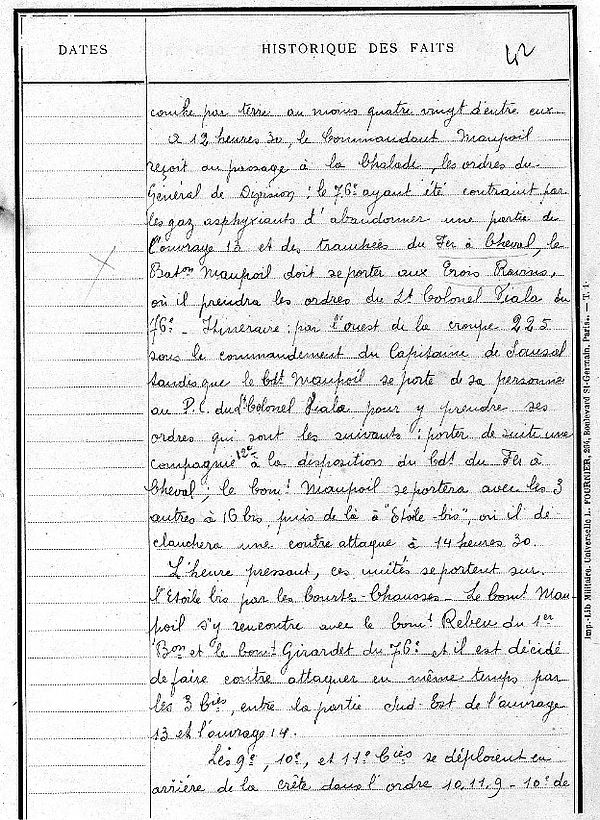 DATES
HISTORIQUE DES FAITS
42
couche par terre au moins quatre vingt d'entre eux
A 12 heures 30, le Commandant Maupoil
reçoit au passage à la Chalade, les ordres du
Général de Division : le 76e ayant été contraint par
les gaz asphyxiants d'abandonner une partie de
l'ouvrage 13 et des tranchées du Fer à Cheval, le
Baton Maupoil doit se porter aux Trois Ravins,
où il prendra les ordres du Lt Colonel Viala du
76e - Itinéraire : par l'ouest de la croupe 225
sous le commandement du Capitaine de
tandis que le Cdt Maupoil se porte de sa personne
au P.C. du Lt Colonel Viala pour y prendre ses
ordres qui sont les suivants : porter de suite une
compagnie 12e à la disposition du Cdt du Fer à
Cheval ; le Comt Maupoil se portera avec les 3
autres à 16 bis, puis de là à "Etoile bis", où il dé
clanchera une contre attaque à 14 heures 30.
L'heure pressant, ces unités se portent sur
l'Etoile bis par les Courtes-Chausses - Le Comt Mau-
poil s'y rencontre avec le Comt Rebeu du 1er
Bon et le Comt Girardet du 76e et il est décidé
de faire contre attaquer en même temps par
les 3 Cies, entre la partie Sud-Est de l'ouvrage
13 et l'ouvrage 14.
Les 9e, 10e, et 11e Cies se déploient en
arrière de la crête dans l'ordre 10.11.9 - 10e de
Imp.-Lib Militaire. Universelle L. FOURNIER, 264, Boulevard St-Germain, Paris. — T. 1